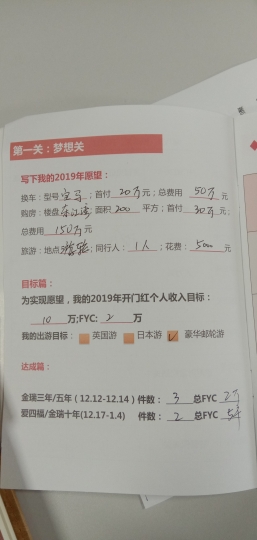 第一关：梦想关
写下我的2019年愿望：
换车：型号宝马；首付 20万元；总费用 50万元
购房：楼盘 面积200 平方；首付 30万元；
总费用 150万元
旅游：地点；同行人：1人；花费：5000元
目标篇：
为实现愿望，我的2019年开门红个人收入目标：
10 万;FYC: 2 万
我的出游目标： 英国游 日本游 ✓ 豪华邮轮游
达成篇：
金瑞三年/五年（12.12-12.14）件数： 3 总FYC 2万
爱四福/金瑞十年(12.17-1.4) 件数： 2 总FYC 5千